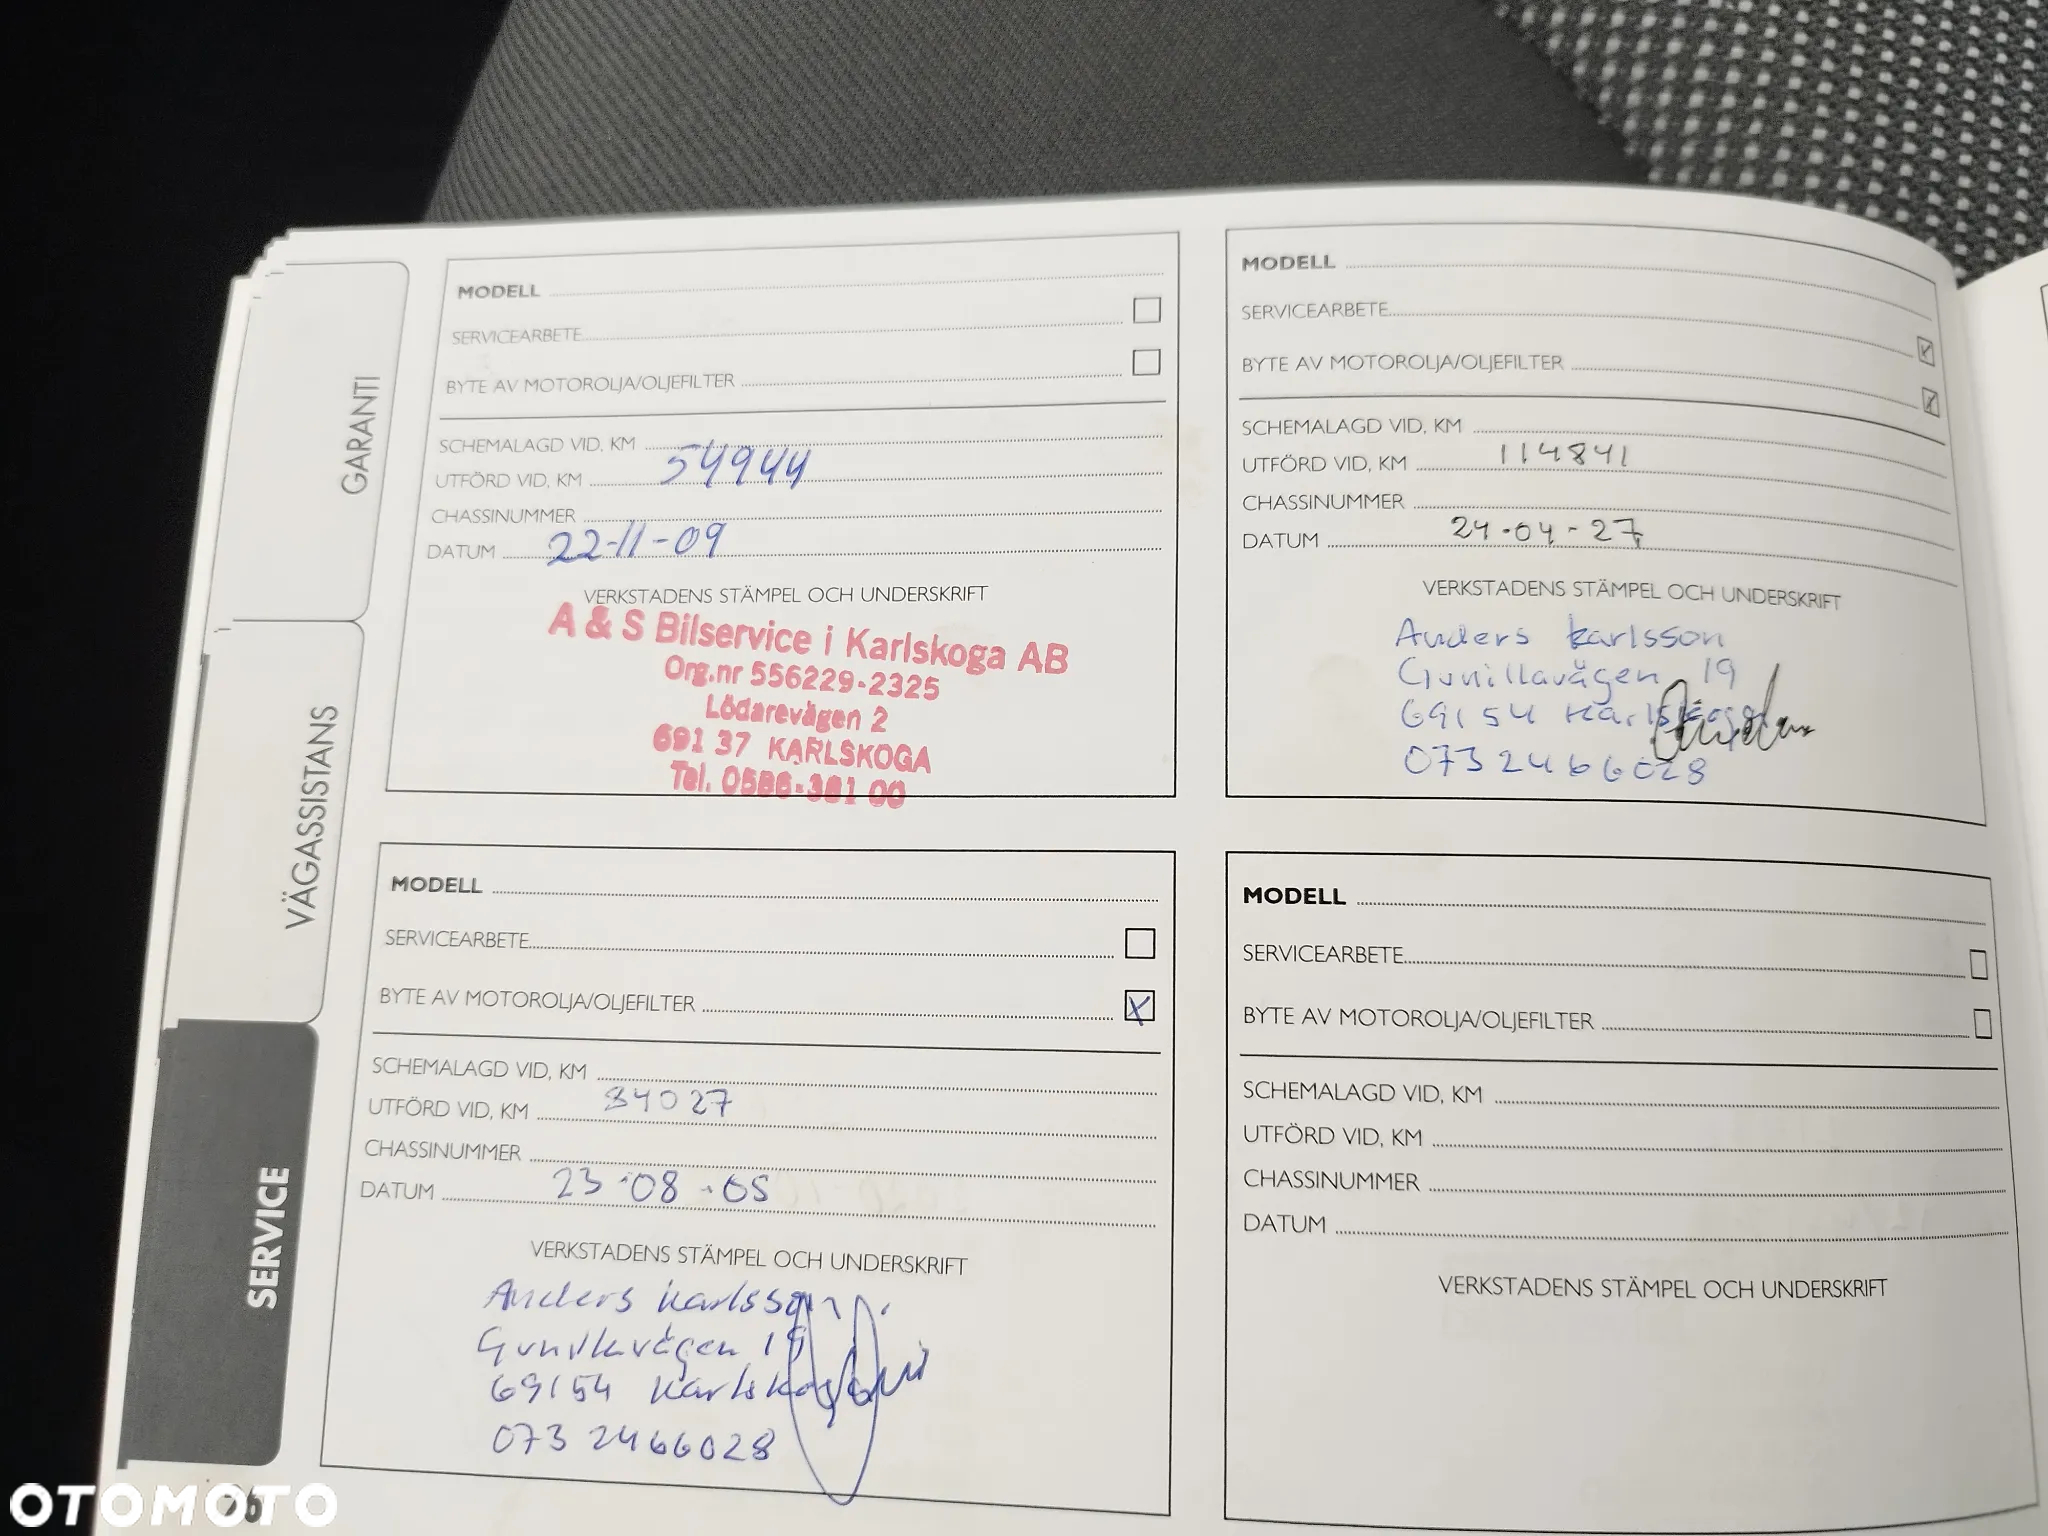 GARANTI
VÄGASSISTANS
SERVICE
MODELL
SERVICEARBETE
BYTE AV MOTOROLJA/OLJEFILTER
SCHEMALAGD VID, KM
UTFÖRD VID, KM 54944
CHASSINUMMER
DATUM 22-11-09
VERKSTADENS STÄMPEL OCH UNDERSKRIFT
A & S Bilservice i Karlskoga AB
Org.nr 556229-2325
Lödarevägen 2
691 37 KARLSKOGA
Tel. 0586-381 00
MODELL
SERVICEARBETE
BYTE AV MOTOROLJA/OLJEFILTER
SCHEMALAGD VID, KM
UTFÖRD VID, KM 114841
CHASSINUMMER
DATUM 24-04-27
VERKSTADENS STÄMPEL OCH UNDERSKRIFT
Anders Karlsson
Gunillavägen 19
69154 Karlskoga
0732466028
MODELL
SERVICEARBETE
BYTE AV MOTOROLJA/OLJEFILTER X
SCHEMALAGD VID, KM
UTFÖRD VID, KM 84027
CHASSINUMMER
DATUM 23-08-05
VERKSTADENS STÄMPEL OCH UNDERSKRIFT
Anders Karlsson
Gunillavägen 19
69154 Karlskoga
073 2466028
MODELL
SERVICEARBETE
BYTE AV MOTOROLJA/OLJEFILTER
SCHEMALAGD VID, KM
UTFÖRD VID, KM
CHASSINUMMER
DATUM
VERKSTADENS STÄMPEL OCH UNDERSKRIFT
OTOMOTO